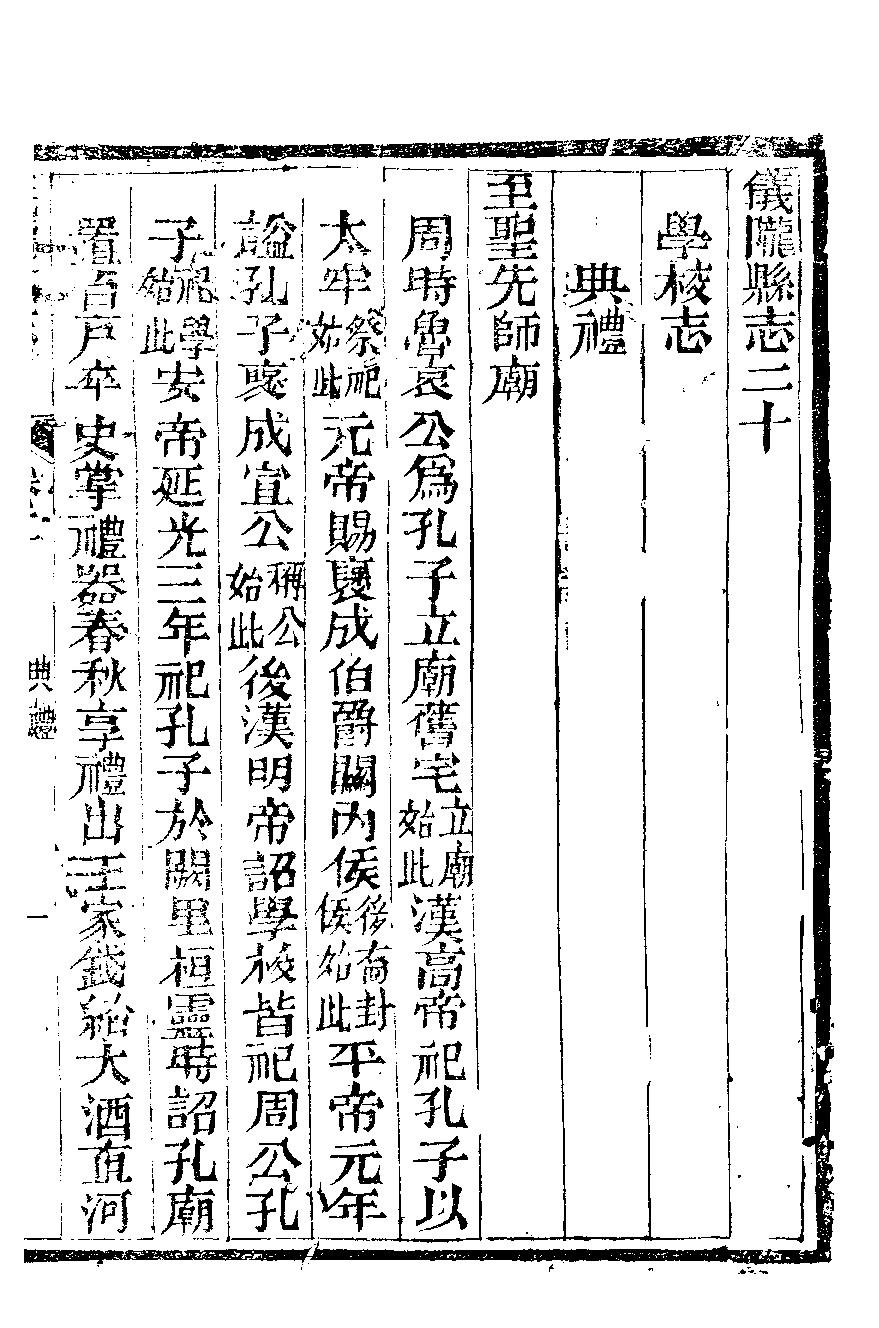 儀隴縣志二十
學校志
典禮
至聖先師廟
周時魯哀公爲孔子立廟舊宅立廟始此漢高帝祀孔子以
太牢祭祀始此元帝賜襃成伯爵關內侯後裔封侯始此平帝元年
諡孔子襃成宣公稱公始此後漢明帝詔學校皆祀周公孔
子祀學始此安帝延光三年祀孔子於闕里桓靈時詔孔廟
置百戶卒史掌禮器春秋享禮出王家錢給大酒直河
典禮
一